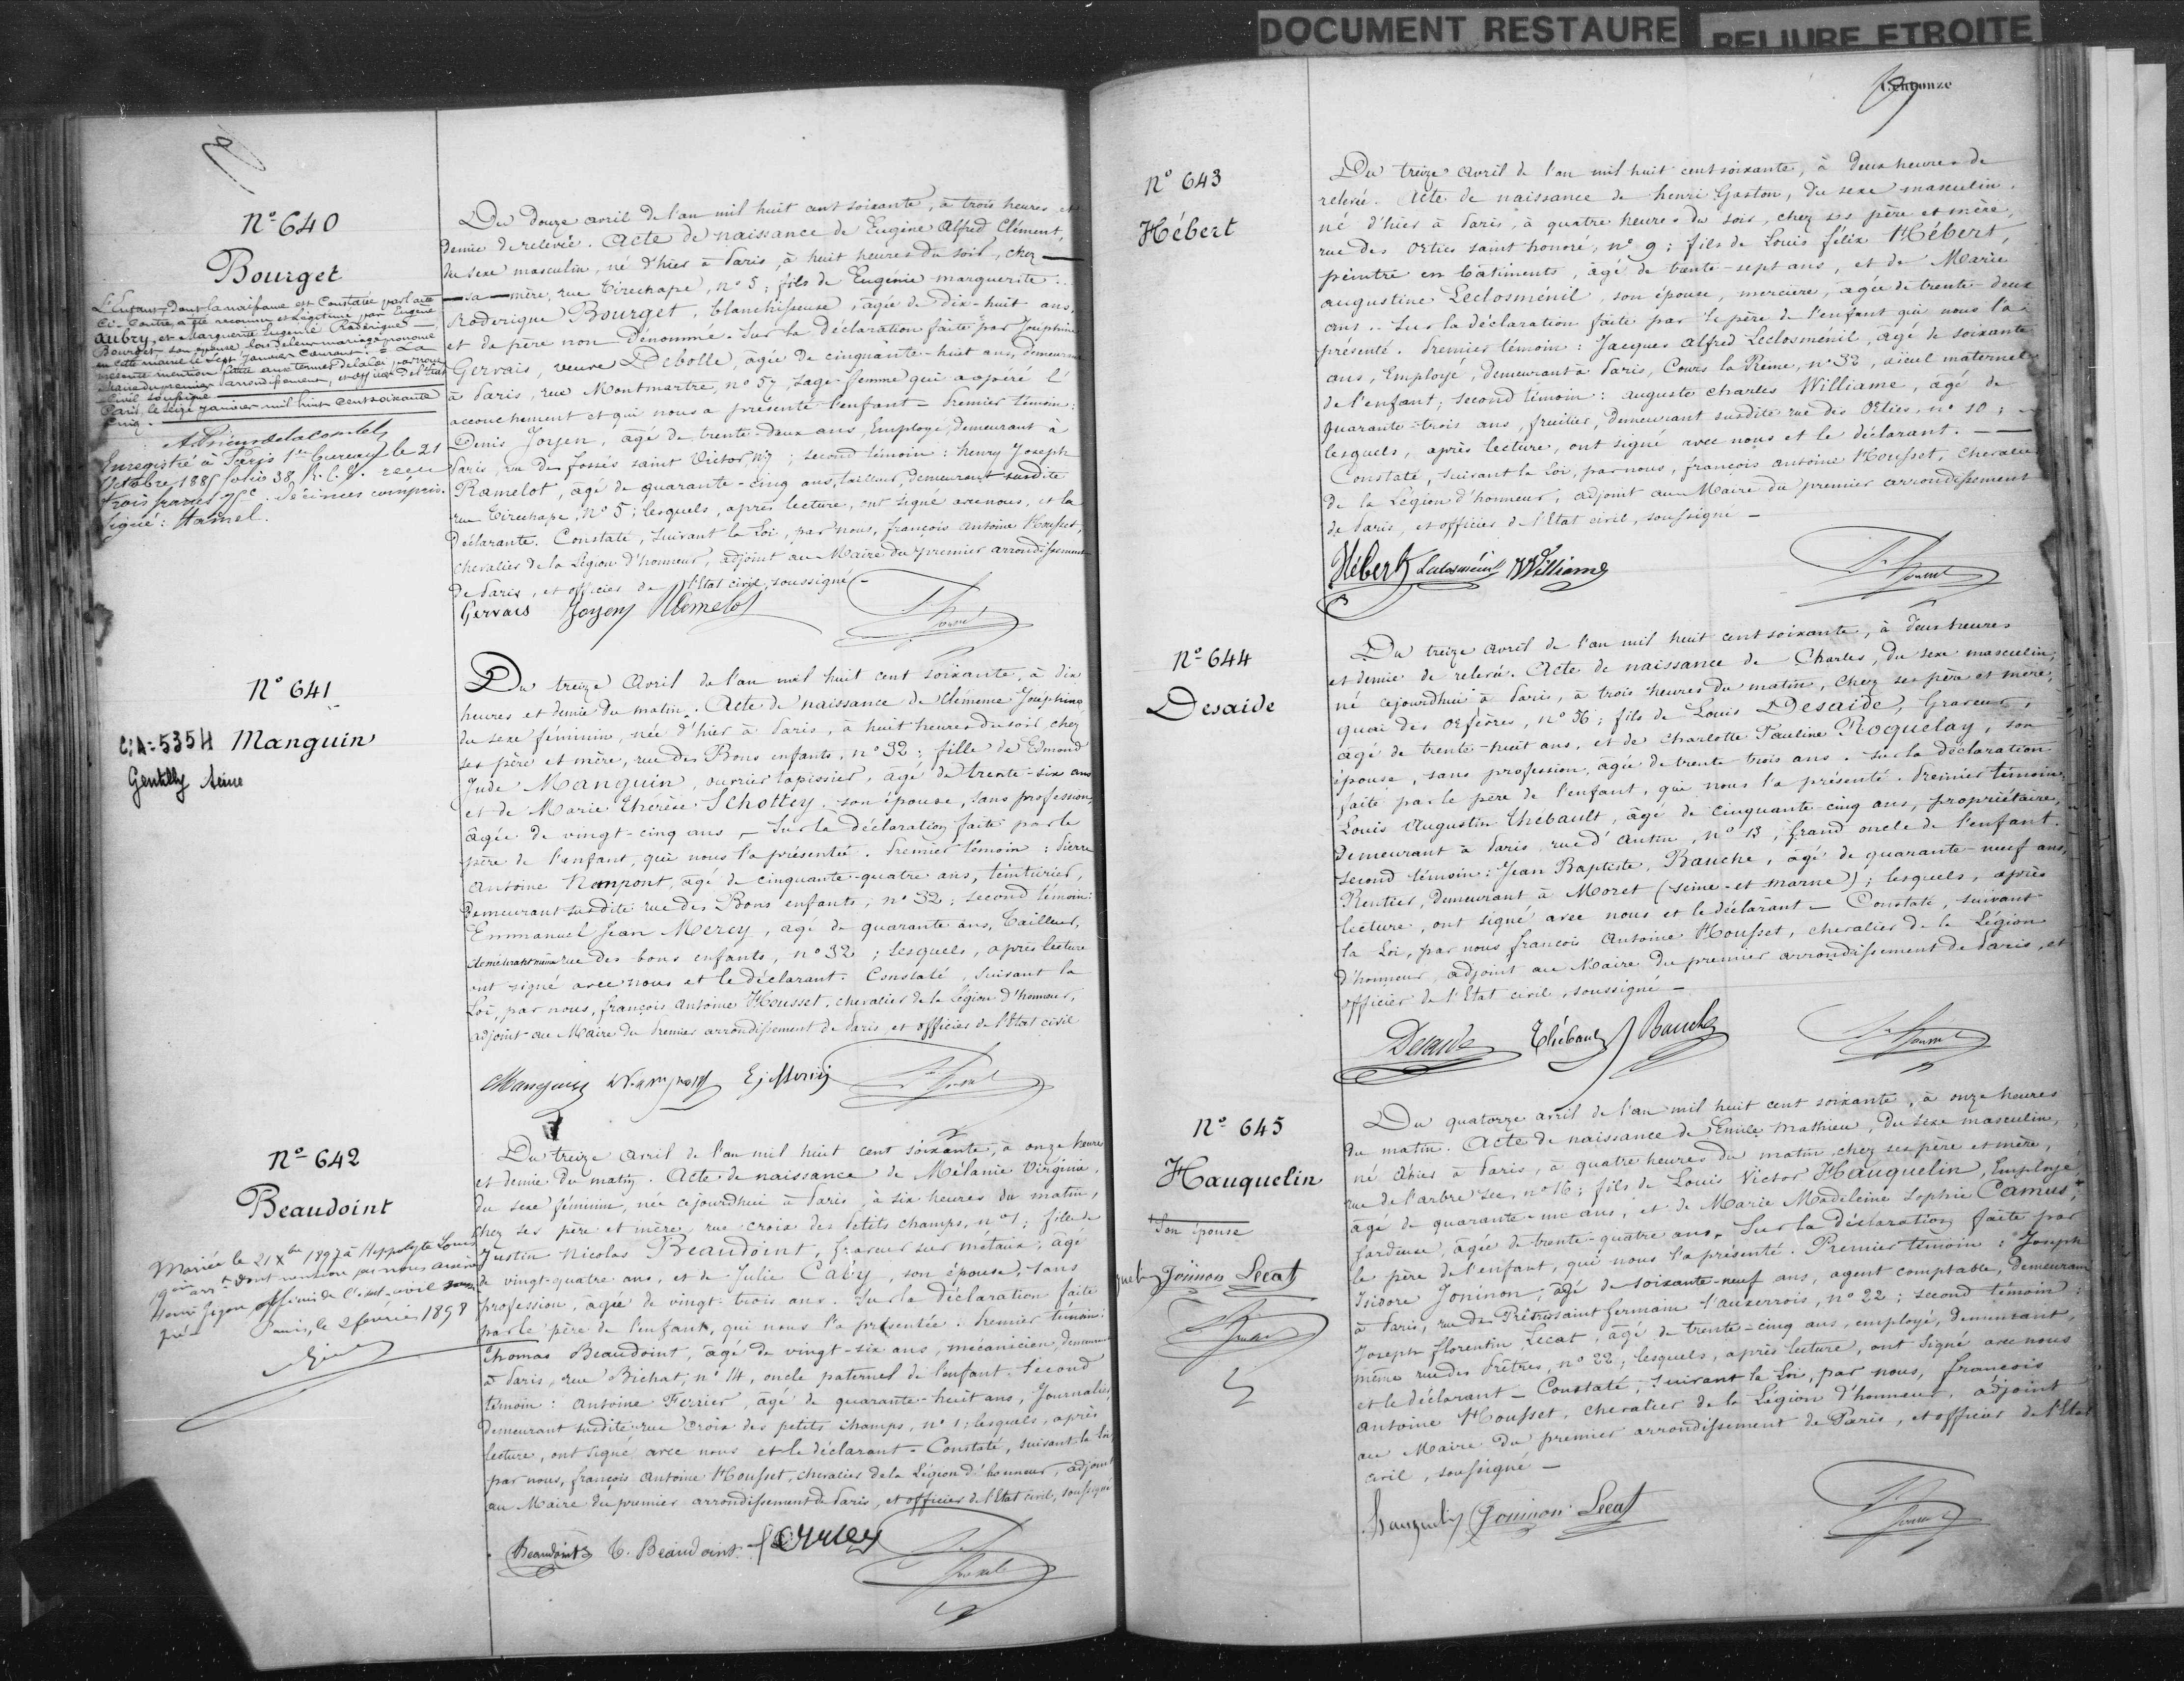 DOCUMENT RESTAURE
RELIURE ETROITE
Nº 640
Bourget
L'Enfant, dont la naissance est Constatée par l'acte
Ci-Contre, a été reconnu et Légitimé par Eugène
Aubry, et Marguerite Eugénie Roderique
Bourget son épouse, lors de leur mariage prononcé
en cette mairie le sept Janvier Courant. = La
présente mention faite aux termes de la loi par nous
Maire du premier arrondissement, et officier de l'Etat
Civil soussigné
Paris, le seize janvier mil huit Cent soixante
cinq.
Enregistré à Paris 1er bureau le 21
Octobre 1885 folio 38, R. C. 8. reçu
trois francs 75c. décimes compris.
Signé: Hamel.
Du douze avril de l'an mil huit cent soixante, à trois heures et
demie de relevée. Acte de naissance de Eugène Alfred Clément,
du sexe masculin, né d'hier à Paris, à huit heures du soir, chez
sa mère, rue Tirechape, nº 5; fils de Eugénie marguerite
Roderique Bourget, blanchisseuse, âgée de dix-huit ans,
et de père non dénommé. Sur la déclaration faite par Joséphine
Gervais, veuve Debolle, âgée de cinquante-huit ans, demeurant
à Paris, rue Montmartre, nº 57, sage-femme qui a opéré l'
accouchement et qui nous a présenté l'enfant - Premier témoin:
Denis Joyen, âgé de trente-deux ans, Employé, demeurant à
Paris, rue des fossés saint Victor, nº 7; second témoin: henry Joseph
Ramelot, âgé de quarante-cinq ans, tailleur, demeurant susdite
rue Tirechape, nº 5; lesquels, après lecture, ont signé avec nous, et la
Déclarante. Constaté, suivant la Loi, par nous, françois antoine Housset,
chevalier de la Légion d'honneur, adjoint au Maire du premier arrondissement
de Paris, et officier de l'Etat civil, soussigné -
Gervais Joyen Ramelot
Nº 641
C: A = 5354 Manguin
Gentilly Seine
Du treize Avril de l'an mil huit cent soixante, à dix
heures et demie du matin. Acte de naissance de Clémence Joséphine,
du sexe féminin, née d'hier à Paris, à huit heures du soir, chez
ses père et mère, rue des Bons enfants, nº 32; fille de Edmond
Jude Manguin, ouvrier tapissier, âgé de trente-six ans
et de Marie Thérèse Schottey, son épouse, sans profession,
âgée de vingt-cinq ans - Sur la déclaration faite par le
père de l'enfant, qui nous l'a présentée. Premier témoin: Pierre
Antoine Nampont, âgé de cinquante-quatre ans, teinturier,
Demeurant susdite rue des Bons enfants, nº 32; second témoin:
Emmanuel Jean Mercy, âgé de quarante ans, Tailleur,
demeurant même rue des bons enfants, nº 32; lesquels, après lecture
ont signé avec nous et le déclarant. Constaté, suivant la
Loi, par nous, françois Antoine Housset, chevalier de la Légion d'honneur,
adjoint au Maire du Premier arrondissement de Paris, et officier de l'Etat civil
Manguin Nampont
Nº 642
Beaudoint
Mariée le 21 Xbre 1897 à Hippolyte Louis
Paris, le 2 février 1898
Du treize avril de l'an mil huit cent soixante, à onze heures
et demie du matin. Acte de naissance de Mélanie Virginie,
du sexe féminin, née cejourdhui à Paris, à six heures du matin,
chez ses père et mère, rue croix des Petits champs, nº 1; fille de
Justin Nicolas Beaudoint, graveur sur métaux, âgé
de vingt-quatre ans, et de Julie Caby, son épouse, sans
profession, âgée de vingt-trois ans. Sur la déclaration faite
par le père de l'enfant, qui nous l'a présentée. Premier témoin:
Thomas Beaudoint, âgé de vingt-six ans, mécanicien, demeurant
à Paris, rue Bichat, nº 14, oncle paternel de l'enfant. Second
témoin: Antoine Ferrier, âgé de quarante-huit ans, Journalier,
demeurant susdite rue Croix des petits champs, nº 1; lesquels, après
lecture, ont signé avec nous et le déclarant. Constaté, suivant la loi,
par nous, françois Antoine Housset, chevalier de la Légion d'honneur, adjoint
au Maire du premier arrondissement de Paris, et officier de l'Etat civil, soussigné
Beaudoint T. Beaudoint
Cent onze
Nº 643
Hébert
Du treize Avril de l'an mil huit cent soixante, à deux heures de
relevée. Acte de naissance de henri Gaston, du sexe masculin,
né d'hier à Paris, à quatre heures du soir, chez ses père et mère,
rue des Orties saint honoré, nº 9; fils de Louis félix Hébert,
peintre en bâtiments, âgé de trente-sept ans, et de Marie
augustine Leclosménil, son épouse, mercière, âgée de trente-deux
ans. Sur la déclaration faite par le père de l'enfant qui nous l'a
présenté. Premier témoin: Jacques Alfred Leclosménil, âgé de soixante
ans, Employé, demeurant à Paris, Cours la Reine, nº 32, aïeul maternel
de l'enfant; second témoin: auguste charles Williame, âgé de
quarante-trois ans, fruitier, demeurant susdite rue des Orties, nº 10;
lesquels, après lecture, ont signé avec nous et le déclarant.
Constaté, suivant la Loi, par nous, françois antoine Housset, chevalier
de la Légion d'honneur, adjoint au Maire du premier arrondissement
de Paris, et officier de l'Etat civil, soussigné -
Hébert Leclosménil Williame
Nº 644
Desaide
Du treize avril de l'an mil huit cent soixante, à deux heures
et demie de relevée. Acte de naissance de Charles, du sexe masculin,
né cejourdhui à Paris, à trois heures du matin, chez ses père et mère,
quai des Orfèvres, nº 56; fils de Louis Desaide, Graveur,
âgé de trente-huit ans, et de Charlotte Pauline Roquelay, son
épouse, sans profession, âgée de trente trois ans. Sur la déclaration
faite par le père de l'enfant, qui nous l'a présenté. Premier témoin:
Louis Augustin Thébault, âgé de cinquante-cinq ans, propriétaire,
Demeurant à Paris, rue d'Antin, nº 13, Grand oncle de l'enfant.
second témoin: Jean Baptiste, Bauche, âgé de quarante-neuf ans,
Rentier, Demeurant à Moret (seine-et marne); lesquels, après
lecture, ont signé avec nous et le déclarant - Constaté, suivant
la Loi, par nous françois Antoine Housset, chevalier de la Légion
d'honneur, adjoint au Maire du premier arrondissement de Paris, et
officier de l'Etat civil, soussigné -
Desaide Thébault Bauche
Nº 645
Hauquelin
*Son épouse
Joninon Lecat
Du quatorze avril de l'an mil huit cent soixante, à onze heures
du matin. Acte de naissance de Emile Mathieu, du sexe masculin,
né d'hier à Paris, à quatre heures du matin, chez ses père et mère,
rue de l'arbre sec, nº 16; fils de Louis Victor Hauquelin, Employé,
âgé de quarante-un ans, et de Marie Madeleine Sophie Camus,*
âgée de trente-quatre ans. Sur la déclaration faite par
le père de l'enfant, qui nous l'a présenté. Premier témoin: Joseph
Isidore Joninon, âgé de soixante-neuf ans, agent comptable, demeurant
à Paris, rue des Prêtres saint Germain l'auxerrois, nº 22; second témoin:
Joseph florentin Lecat, âgé de trente-cinq ans, employé, demeurant,
même rue des Prêtres, nº 22; lesquels, après lecture, ont signé avec nous
et le déclarant - Constaté, suivant la Loi, par nous, françois
Antoine Housset, chevalier de la Légion d'honneur, adjoint
au Maire du premier arrondissement de Paris, et officier de l'Etat
civil, soussigné -
Hauquelin Joninon Lecat